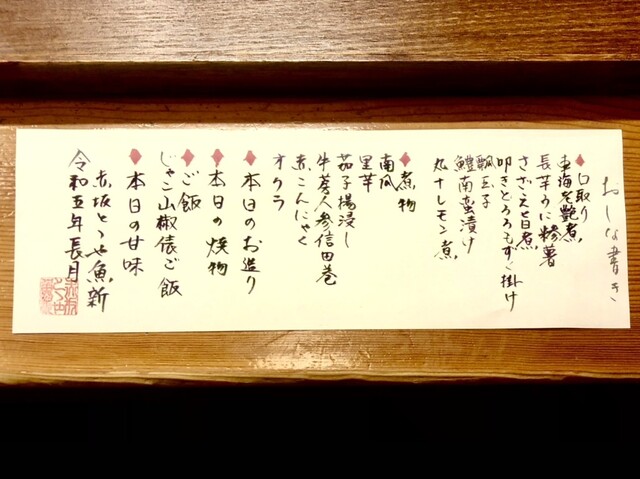 おしな書き
口取り
車海老艶煮
長芋うに糝薯
さざえ旨煮
叩きとろろもずく掛け
瓢玉子
鱧南蛮漬け
丸十レモン煮
煮物
南瓜
里芋
茄子揚浸し
牛蒡人参信田巻
赤こんにゃく
オクラ
本日のお造り
本日の焼物
ご飯
じゃこ山椒俵ご飯
本日の甘味
令和五年長月
赤坂とゝや魚新